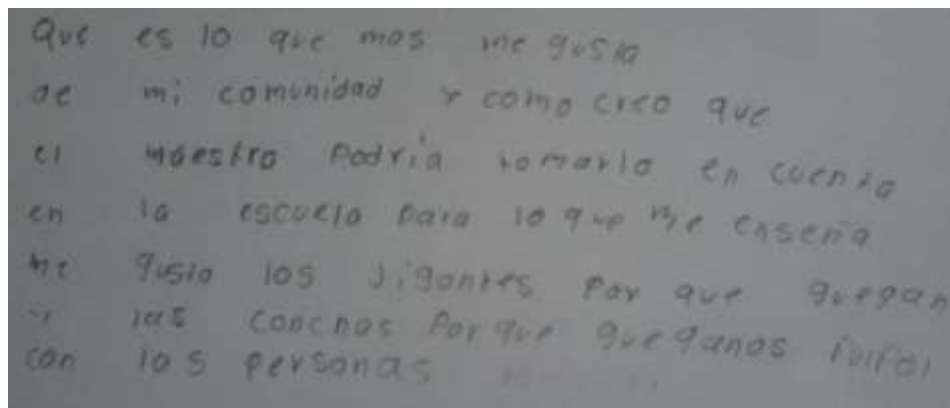 Que es lo que mas me gusta
de mi comunidad y como creo que
el maestro Podria tomarlo en cuenta
en la escuela para lo que me enseña
me gusta los Jigantes Por que guegan
y las conchas Por que gueganos futbol
con las personas